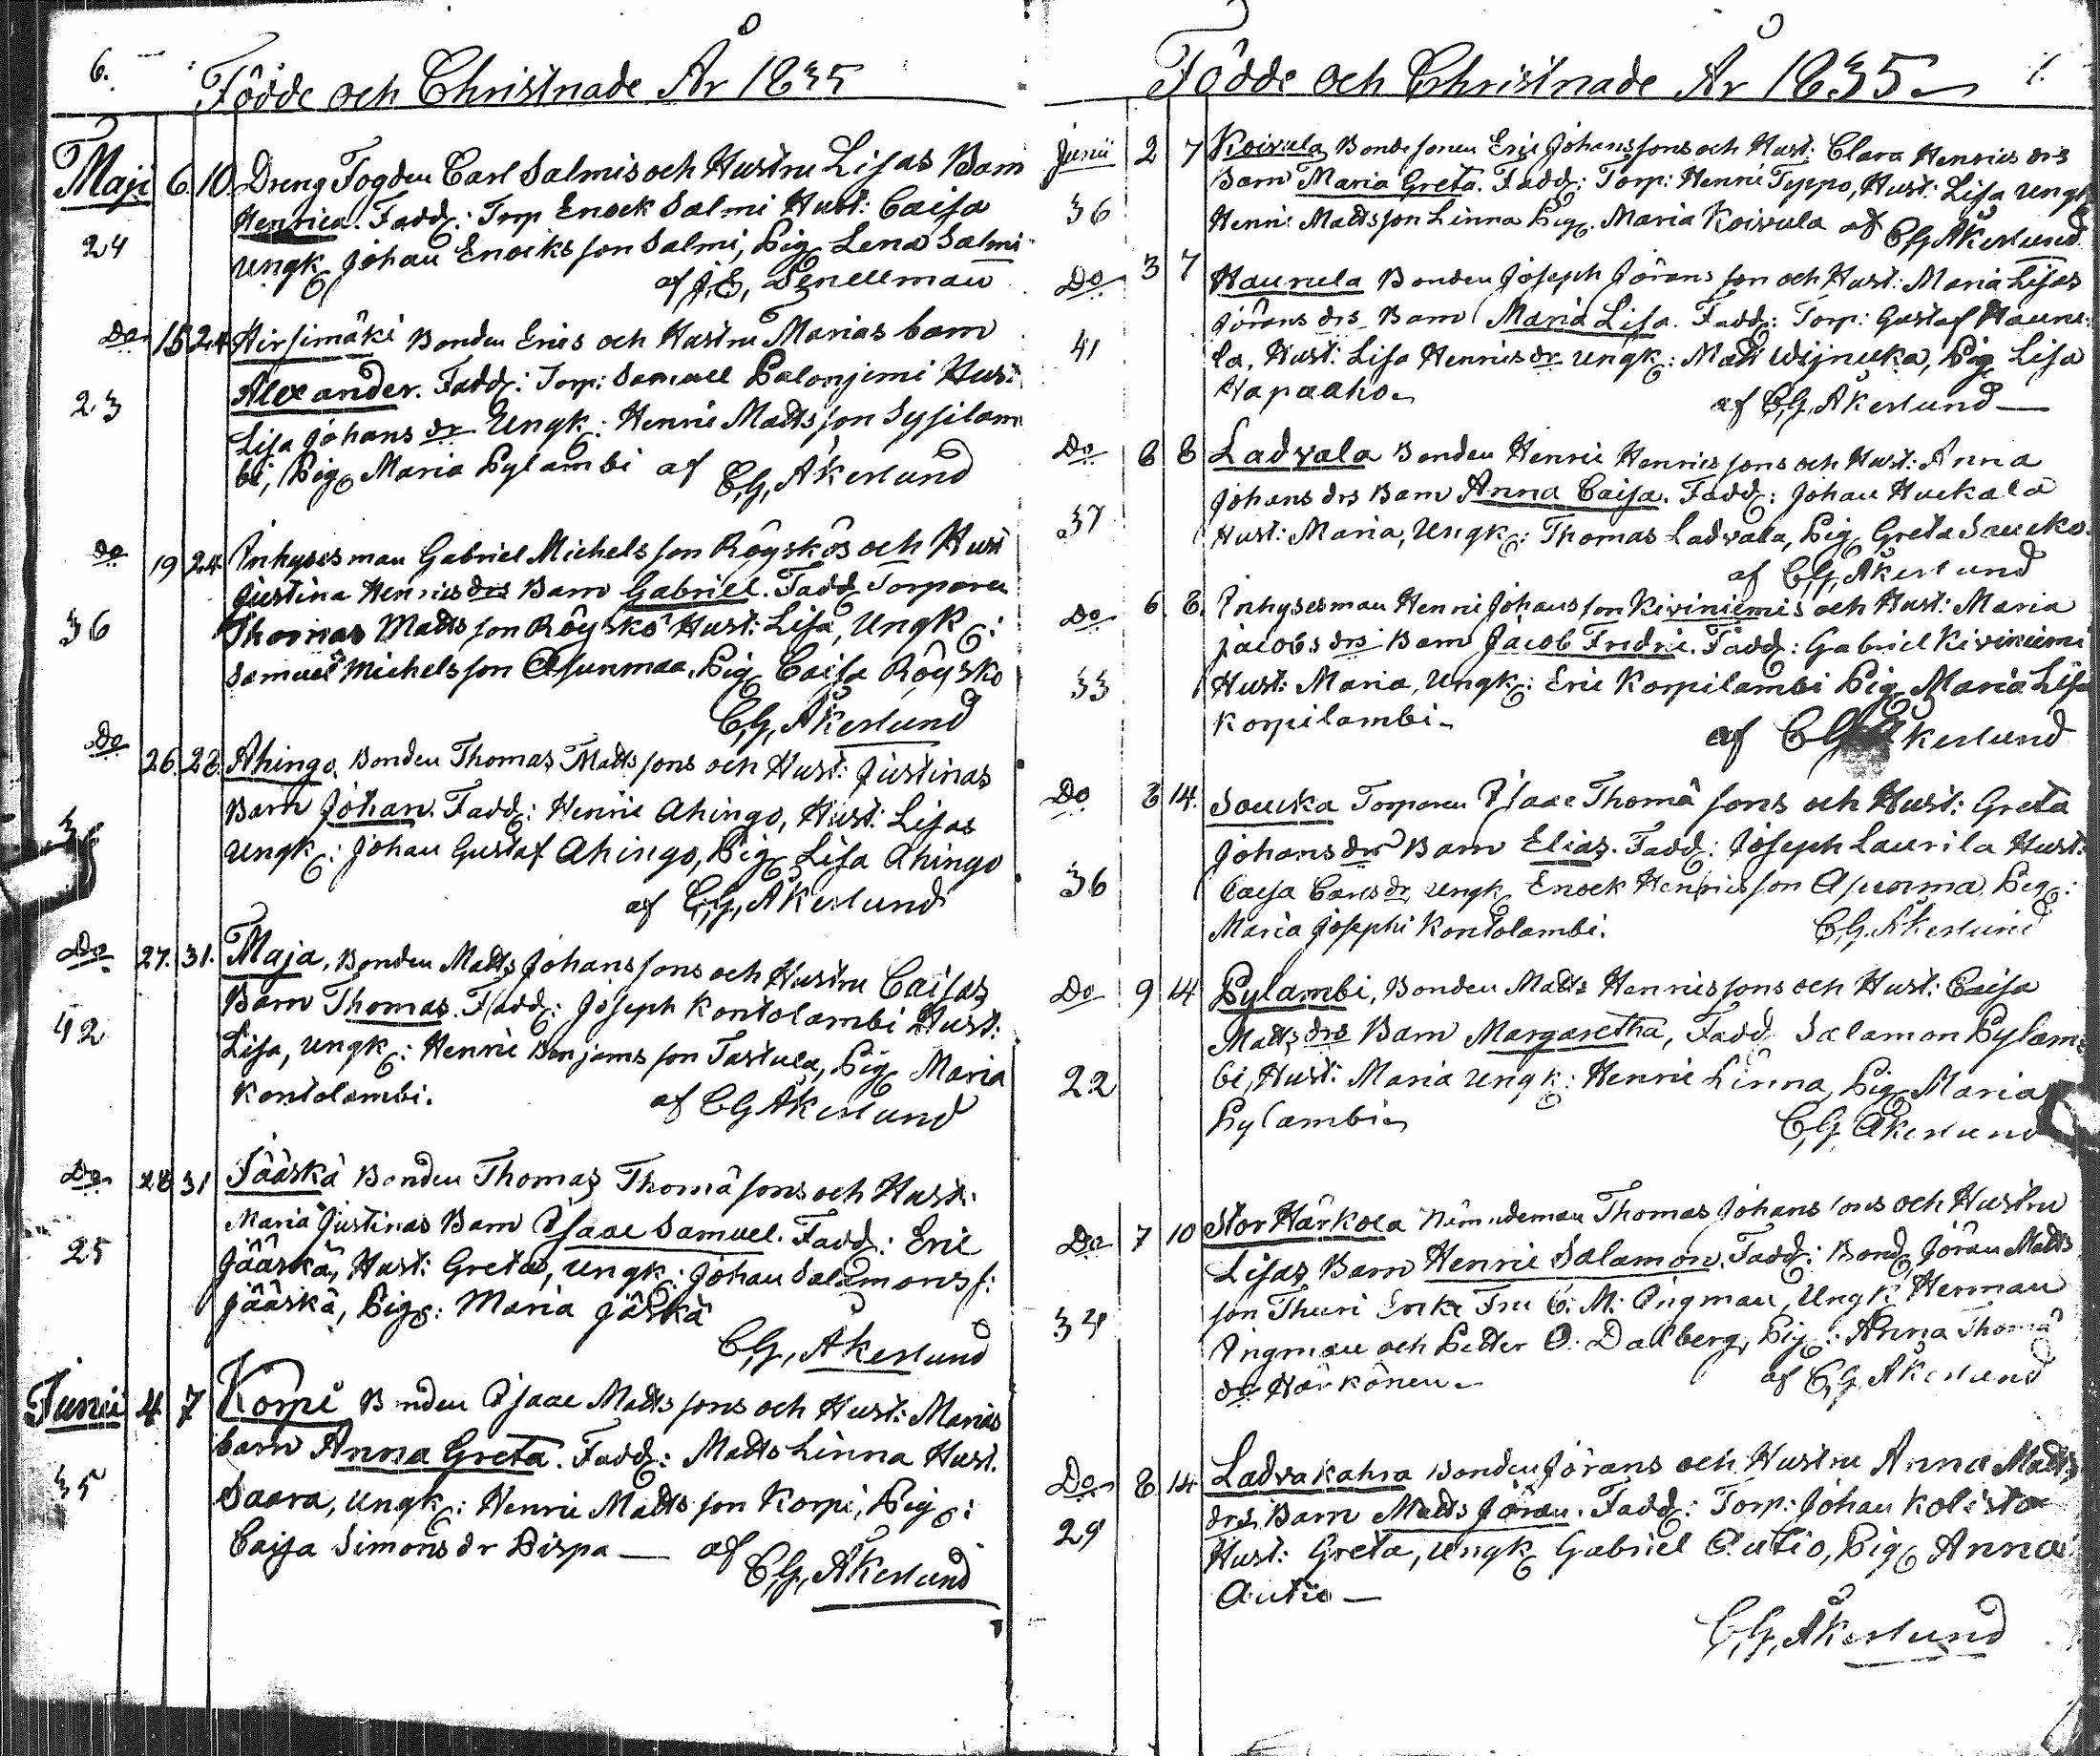 6.
Födde och Christnade År 1835
Maji 6. 10. Dreng Fogden Carl Salmis och Hustru Lisas Barn
Henrica. Fadd: Torp Enock Salmi Hust: Caisa
24 Ungk Johan Enocksson Salmi, Pig Lena Salmi
af J.E,
do 15 24 Hirsimäki Bonden Erics och Hustru Marias barn
Alexander. Fadd: Torp: Samuel Palonjemi Hust:
23 Lisa Johans dr Ungk: Henric Mattsson Sysilam
bi, Pig Maria Pylambi af C,G, Åkerlund
do 19 24 Inhyses man Gabriel Michelsson Röyskös och Hust
Justina Henrics drs Barn Gabriel. Fadd Torparen
36 Thomas Mattsson Röyskö Hust: Lisa, Ungk:
Samuel Michelsson Asunmaa, Pig Caisa Röyskö
C,G, Åkerlund
do 26 28 Ahingo Bonden Thomas Mattssons och Hust: Justinas
Barn Johan. Fadd: Henric Ahingo, Hust: Lisas
Ungk: Johan Gustaf Ahingo, Pig Lisa Ahingo
af C,G, Åkerlund
Do 27. 31. Maja, Bonden Matts Johanssons och Hustru Caisas
Barn Thomas. Fadd: Joseph Kontolambi Hust:
42 Lisa, Ungk: Henric Benjamsson Tastula, Pig Maria
Kontolambi. af C G Åkerlund
Do 28 31 Jääskä Bonden Thomas Thomä sons och Hust:
Maria Justinas Barn Isaac Samuel. Fadd: Eric
25 Jääskä, Hust: Greta, Ungk: Johan Salamons s:
Jääskä, Pig: Maria Jäskä
C,G, Åkerlund
Junii 4 7 Korpi Bonden Isaac Mattssons och Hust: Marias
barn Anna Greta. Fadd: Matts Linna Hust.
35 Saara, Ungk: Henric Mattsson Korpi, Pig:
Caisa Simons dr Pispa — af
C,G, Åkerlund
Födde och Christnade År 1835
Junii 2 7 Koivula Bondesonen Eric Johanssons och Hust: Clara Henrics drs
Barn Maria Greta. Fadd: Torp: Henric Teppo, Hust: Lisa Ungk
36 Henric Mattsson Linna Pig. Maria Koivula af C,G, Åkerlund
Do 3 7 Haunula Bonden Joseph Jöransson och Hust: Maria Lisas
Jörans drs Barn Maria Lisa. Fadd: Torp: Gustaf Haunu-
41 la, Hust: Lisa Henrics dr Ungk: Matts, Pig Lisa
Hapaaho
af C,G, Åkerlund
Do 6 8 Ladvala Bonden Henric Henricssons och Hust: Anna
Johans drs Barn Anna Caisa. Fadd: Johan Huckala
37 Hust: Maria, Ungk: Thomas Ladvala, Pig Greta Saucko.
af C,G, Åkerlund
Do 6. 8. Inhyses man Henric Johansson Kiviniemis och Hust: Maria
Jacobs drs Barn Jacob Fredric. Fadd: Gabriel Kiviniemi
33 Hust: Maria, Ungk: Eric Korpilambi Pig Maria Lisa
Korpilambi
af C G Åkerlund
Do 8 14. Soucka Torparen Isaac Thomä sons och Hust: Greta
Johans drs Barn Elias. Fadd: Joseph Laurila Hust:
36 Caisa Carls dr, Ungk Enock Henricsson Asunma, Pig:
Maria Josephi Kontolambi.
C,G. Åkerlund
Do 9 14 Pylambi, Bonden Matts Henricssons och Hust: Caisa
Matts drs Barn Margaretha, Fadd Salamon Pylam-
22 bi, Hust: Maria Ungk: Henric Linna, Pig Maria
Pylambi
C,G Åkerlund
Do 7 10 Stor Härkola Nämndeman Thomas Johanssons och Hustru
Lisas Barn Henric Salamon, Fadd: Bond. Jöran Matts
son Thuri Enke Fru C: M: Ingman, Ungk Herman
Ingman och Petter O: Dalberg, Pig: Anna Thomä
dr Härkönen
af C,G, Åkerlund
Do 8 14 Ladvakahra Bonden Jörans och Hustru Anna Matts
drs Barn Matts Jöran. Fadd: Torp: Johan Kolisto
29 Hust: Greta, Ungk Gabriel Autio, Pig Anna
Autio —
C,G, Åkerlund